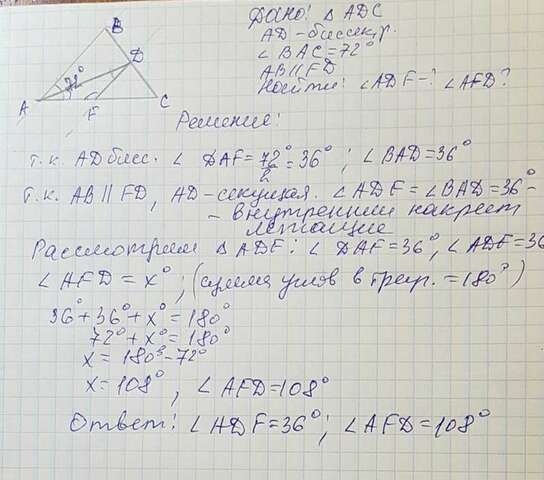 Дано: △ ADC
AD - биссектр.
∠ BAC = 72°
AB || FD
Найти: ∠ADF - ? ∠AFD?
B
D
72°
A
F
C
Решение:
т.к. AD бисс. ∠ DAF = 72°/2 = 36° ; ∠BAD = 36°
т.к. AB || FD, AD - секущая. ∠ADF = ∠BAD = 36° -
- внутренний накрест
лежащие
Рассмотрим △ ADF: ∠ DAF = 36°, ∠ADF = 36
∠ AFD = x° ; (сумма углов в треуг. = 180°)
36° + 36° + x° = 180°
72° + x° = 180°
x = 180° - 72°
x = 108° , ∠ AFD = 108°
Ответ: ∠ ADF = 36° ; ∠ AFD = 108°